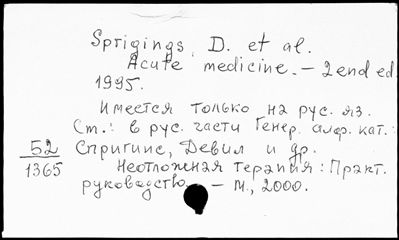 Sprigings, D. et al.
Acute medicine. – 2end ed.
1995.
Имеется только на рус. яз.
См.: в рус. части Генер. алф. кат.:
52 Спригинс, Девид и др.
1365 Неотложная терапия: Практ.
руководство. – М., 2000.